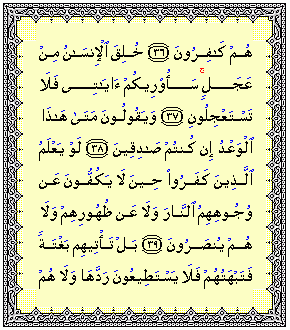 هُمْ كَـٰفِرُونَ ﴿٣٦﴾ خُلِقَ ٱلْإِنسَـٰنُ مِنْ
عَجَلٍۢ ۚ سَأُو۟رِيكُمْ ءَايَـٰتِى فَلَا
تَسْتَعْجِلُونِ ﴿٣٧﴾ وَيَقُولُونَ مَتَىٰ هَـٰذَا
ٱلْوَعْدُ إِن كُنتُمْ صَـٰدِقِينَ ﴿٣٨﴾ لَوْ يَعْلَمُ
ٱلَّذِينَ كَفَرُوا۟ حِينَ لَا يَكُفُّونَ عَن
وُجُوهِهِمُ ٱلنَّارَ وَلَا عَن ظُهُورِهِمْ وَلَا
هُمْ يُنصَرُونَ ﴿٣٩﴾ بَلْ تَأْتِيهِم بَغْتَةًۭ
فَتَبْهَتُهُمْ فَلَا يَسْتَطِيعُونَ رَدَّهَا وَلَا هُمْ